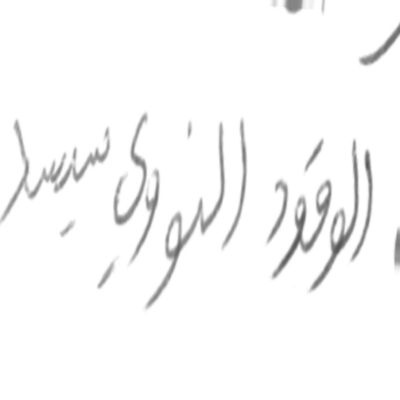 الوقود النووي سيبد